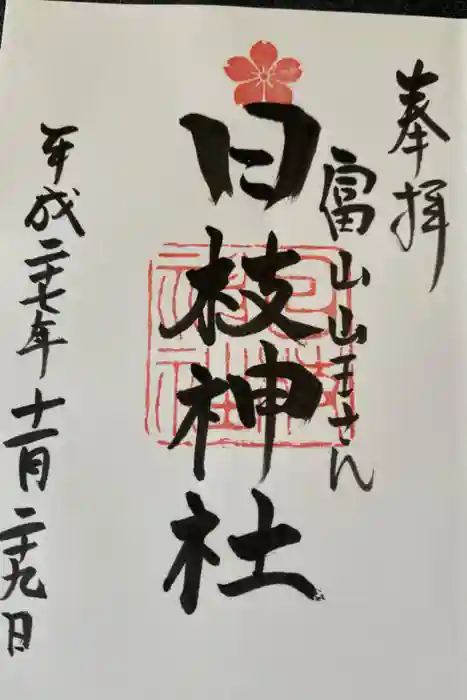 奉拝
富山山王さん
日枝神社
平成二十七年十一月二十九日